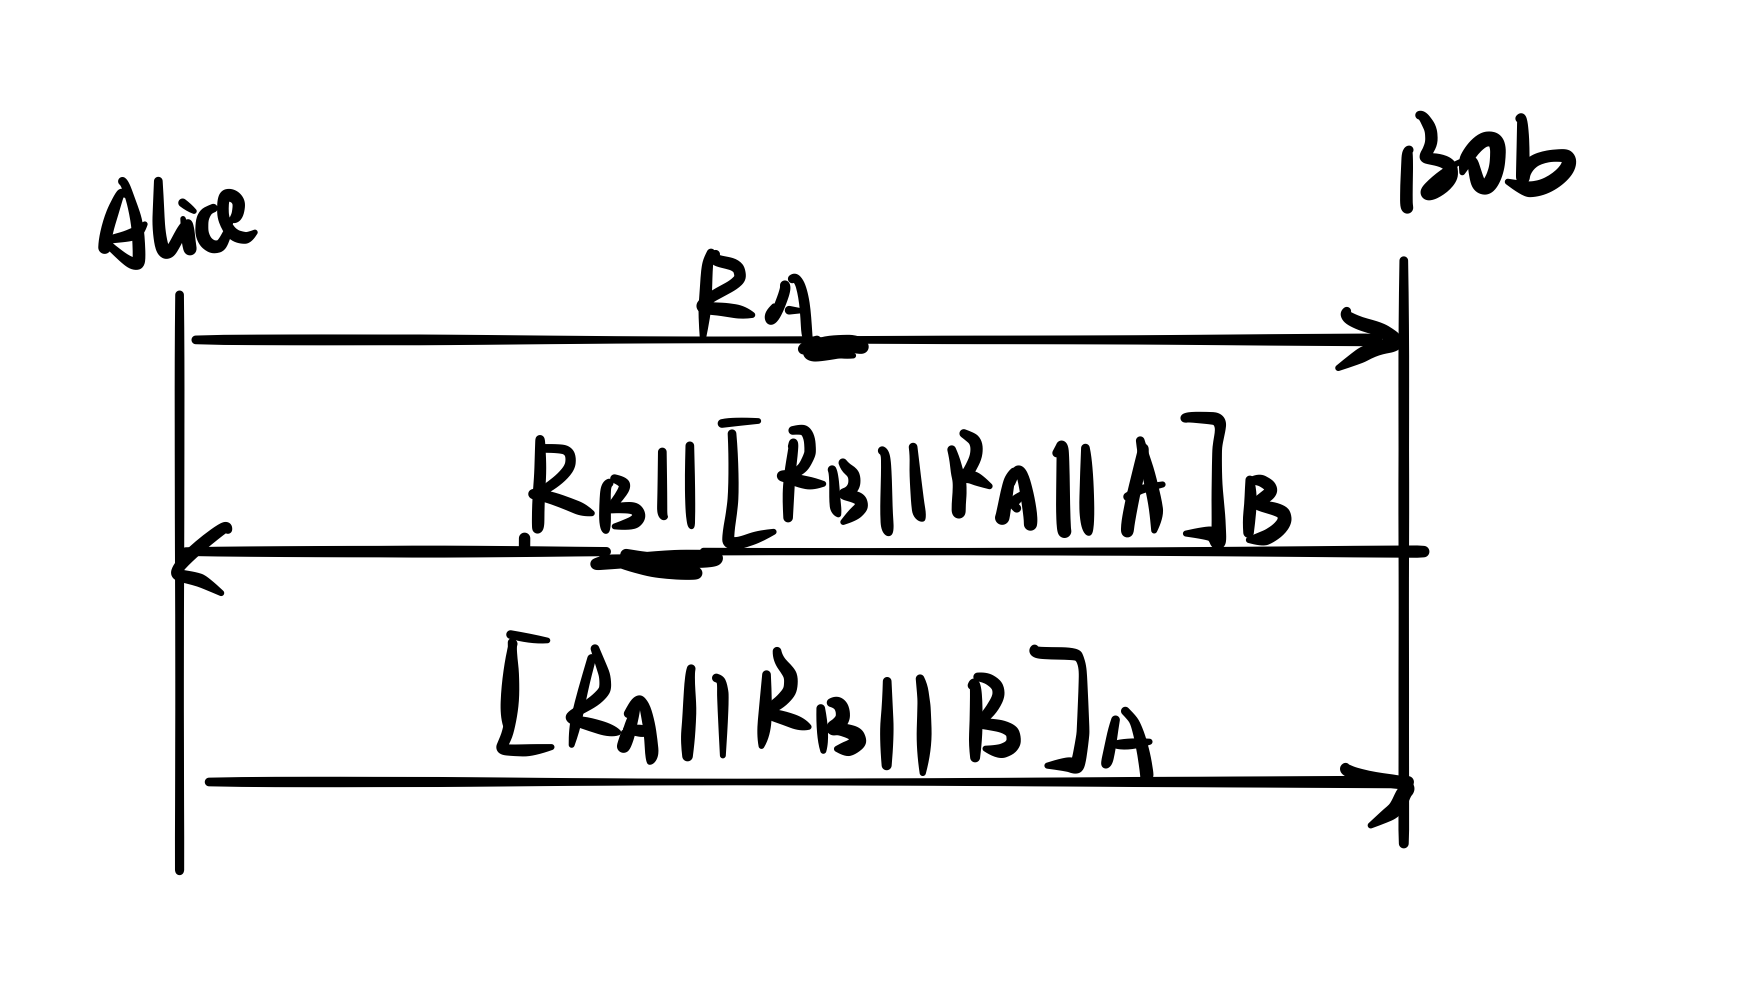 Alice
Bob
R_A
R_B||[R_B||R_A||A]_B
[R_A||R_B||B]_A